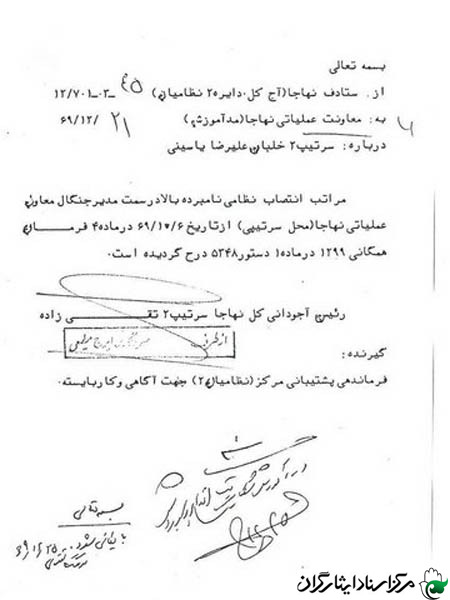 بسمه تعالی
از: ستادف نهاجا(آج کل.دایره۲ نظامیان) ۴۵-۰۳-۱۲/۷۰۱
به: معاونت عملیاتی نهاجا(مدآموزش) ۶۹/۱۲/۲۱
درباره: سرتیپ۲ خلبان علیرضا یاسینی
مراتب انتصاب نظامی نامبرده بالادرسمت مدیرجنگال معاونت
عملیاتی نهاجا(محل سرتیپی) ازتاریخ ۶۹/۱۰/۶ درماده۴ فرمان
همگانی ۱۲۹۹ درماده۱ دستور۵۳۴۸ درج گردیده است.
رئیس آجودانی کل نهاجا سرتیپ۲ تقی زاده
ازطرف
گیرنده:
فرماندهی پشتیبانی مرکز(نظامیان۲) جهت آگاهی وکاربایسته.
بسمه تعالی
بایگانی شود
مرکز اسناد ایثارگران